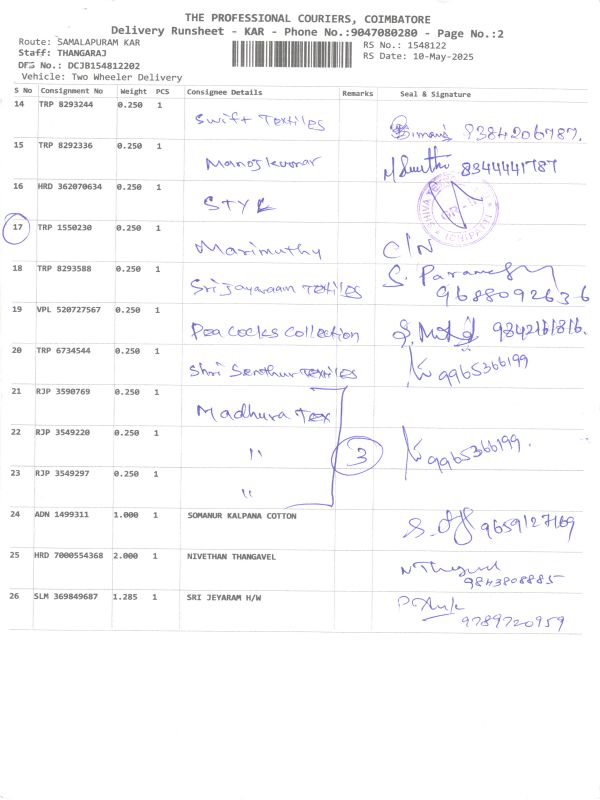 THE PROFESSIONAL COURIERS, COIMBATORE
Delivery Runsheet - KAR - Phone No.:9047080280 - Page No.:2
Route: SAMALAPURAM KAR RS No.: 1548122
Staff: THANGARAJ RS Date: 10-May-2025
DFS No.: DCJB154812202
Vehicle: Two Wheeler Delivery
S No Consignment No Weight PCS Consignee Details Remarks Seal & Signature
14 TRP 8293244 0.250 1 Swift Textiles 9384206787.
15 TRP 8292336 0.250 1 Manojkumar 8344441787
16 HRD 362070634 0.250 1 STYL
17 TRP 1550230 0.250 1 Marimuthy C/N
18 TRP 8293588 0.250 1 Srijayaraam Textiles 9688092636
19 VPL 520727567 0.250 1 Peacocks Collection
20 TRP 6734544 0.250 1 Shri Senthur Textiles 9965366199
21 RJP 3590769 0.250 1 Madhura Tex
22 RJP 3549220 0.250 1 " 3 9965366199.
23 RJP 3549297 0.250 1 "
24 ADN 1499311 1.000 1 SOMANUR KALPANA COTTON 9659127169
25 HRD 7000554368 2.000 1 NIVETHAN THANGAVEL 9843808885
26 SLM 369849687 1.285 1 SRI JEYARAM H/W 9789720959